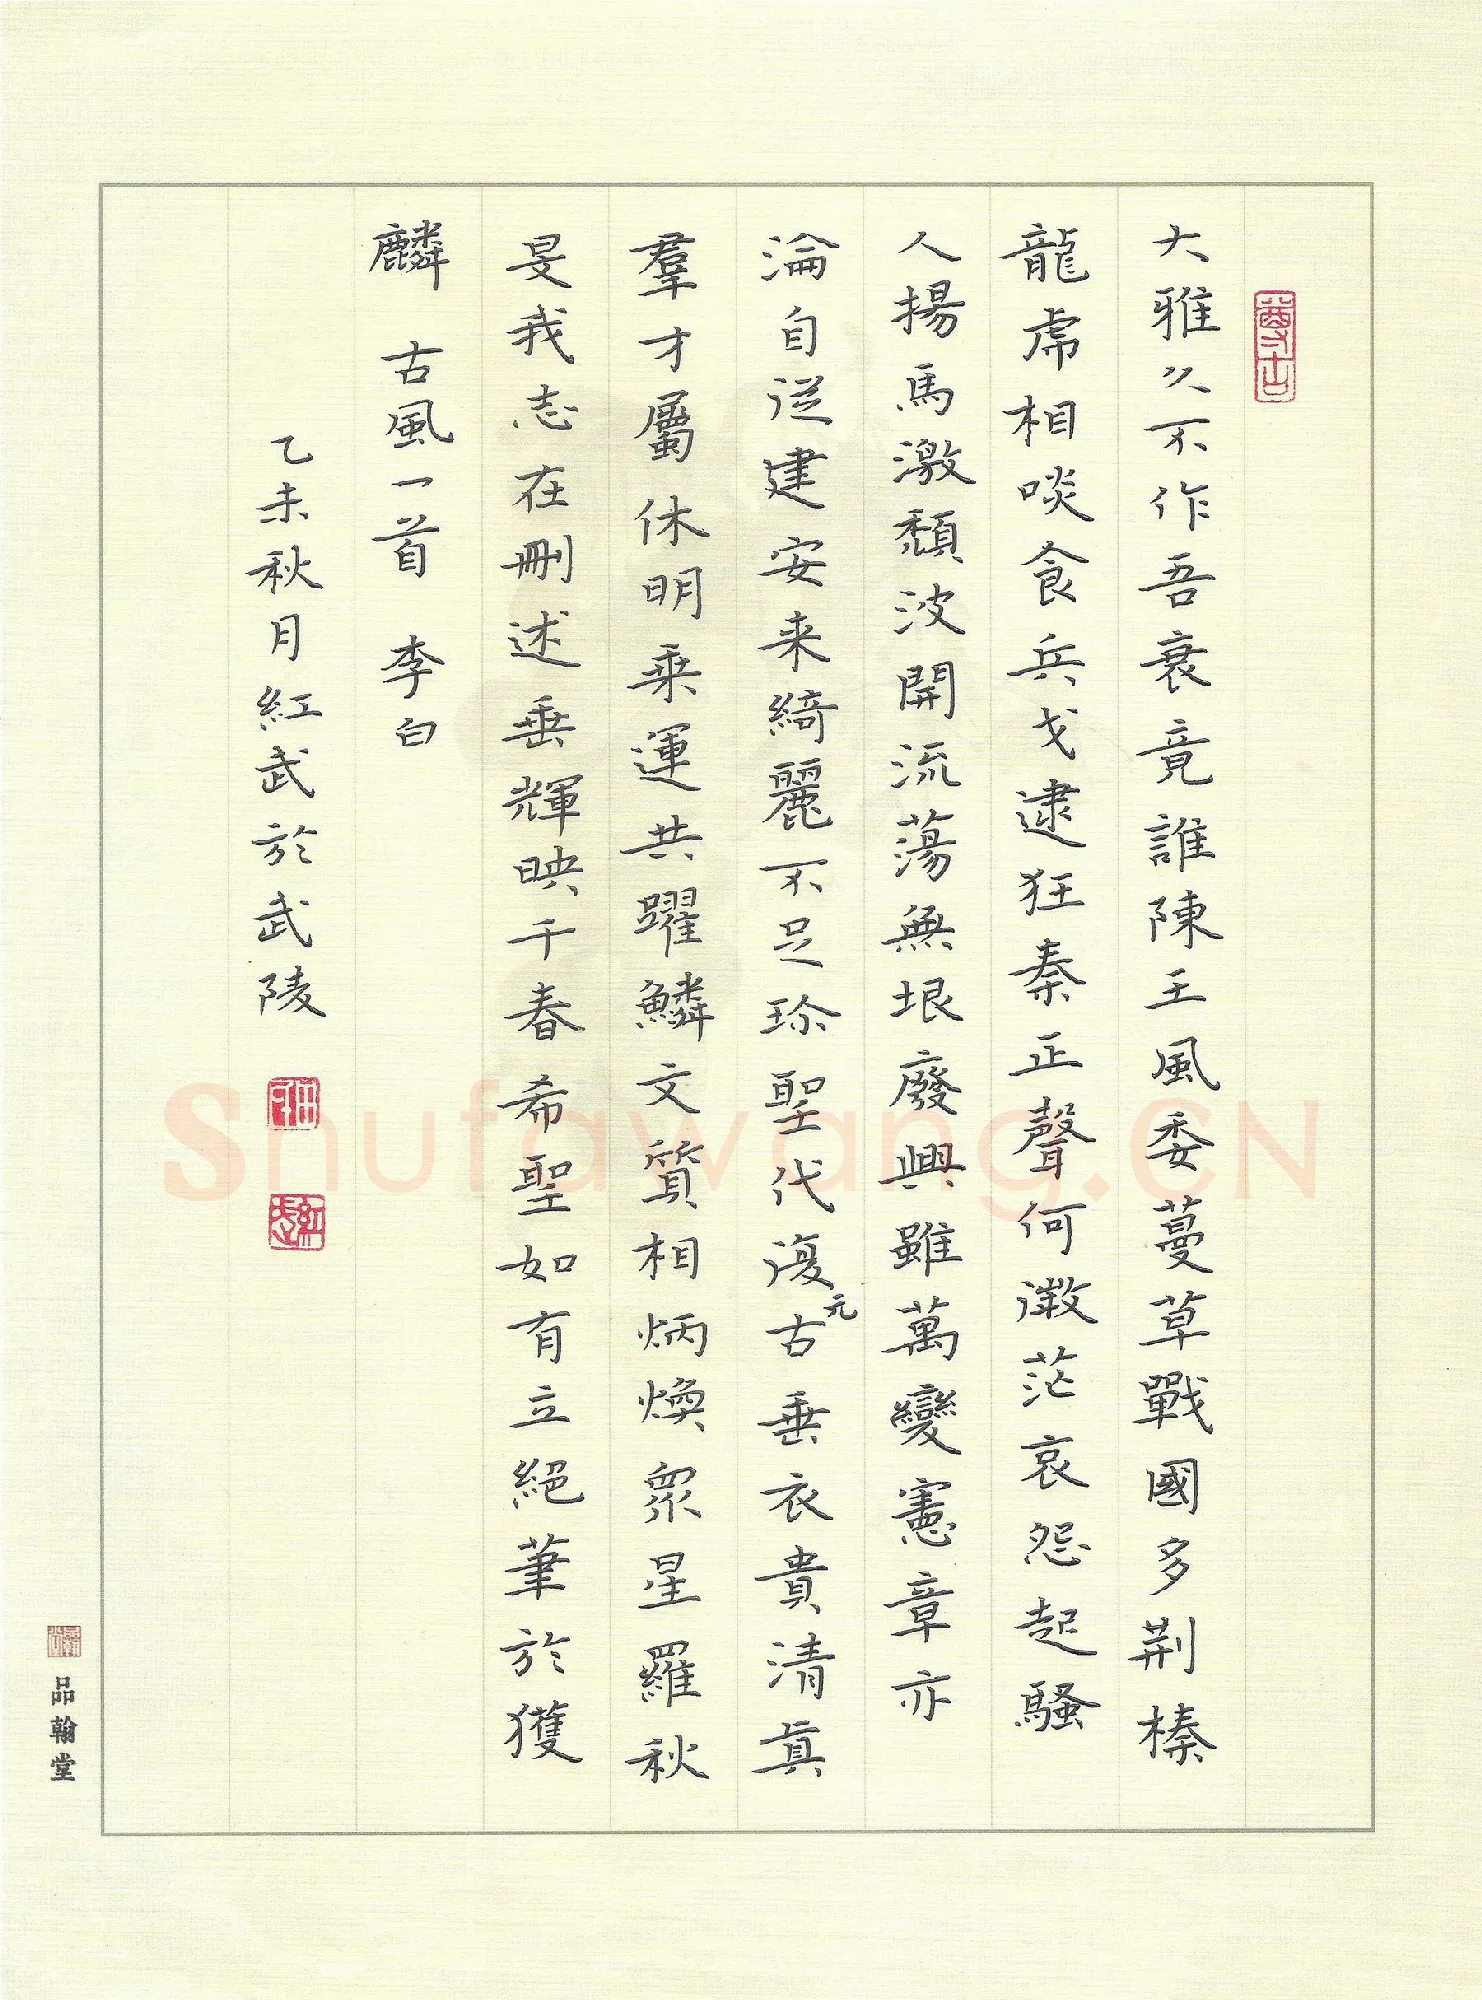 大雅久不作吾衰竟誰陳王風委蔓草戰國多荆榛
龍虎相啖食兵戈逮狂秦正聲何微茫哀怨起騷
人揚馬激頹波開流蕩無垠廢興雖萬變憲章亦
淪自從建安来綺麗不足珍聖代復元古垂衣貴清真
羣才屬休明乘運共躍鱗文質相炳煥衆星羅秋
旻我志在刪述垂輝映千春希聖如有立絕筆於獲
麟 古風一首 李白
乙未秋月紅武於武陵
品翰堂
Shufawang.CN